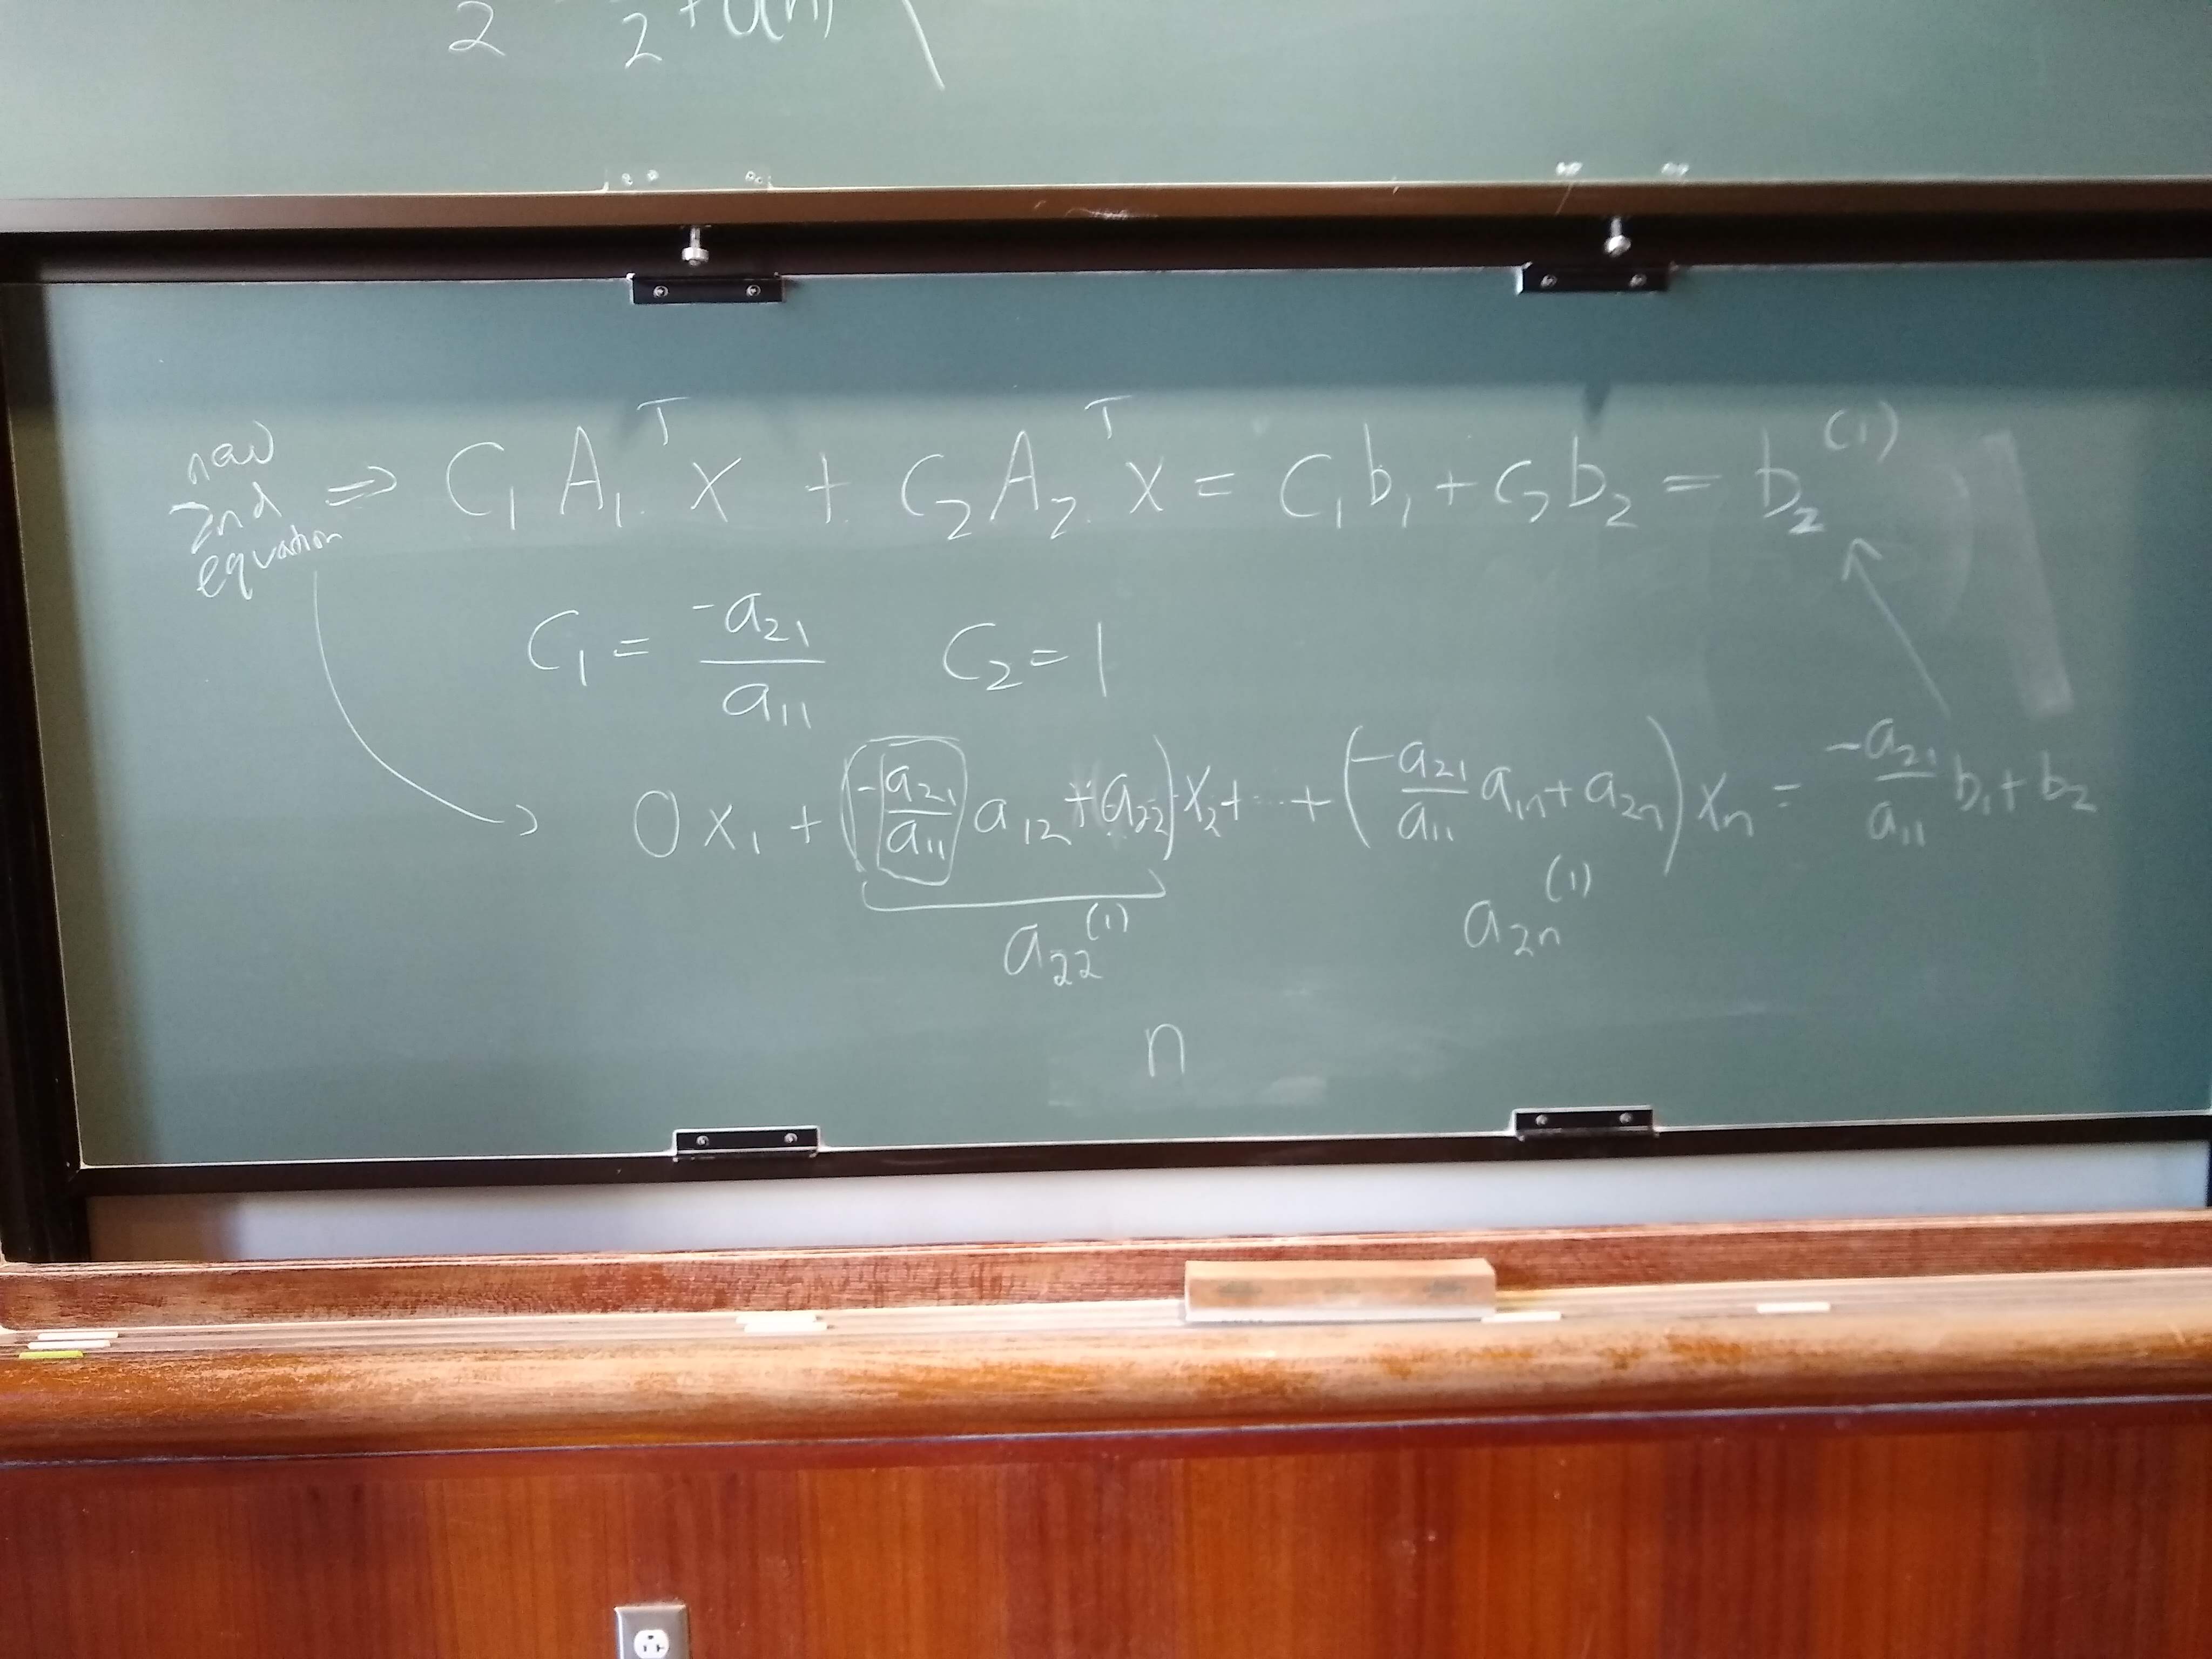 2 2 + a(n)
new 2nd equation ⇒ C₁A₁ᵀx + C₂A₂ᵀx = C₁b₁ + C₂b₂ = b₂⁽¹⁾
C₁ = -a₂₁/a₁₁ C₂ = 1
0x₁ + (-a₂₁/a₁₁ a₁₂ + a₂₂)x₂ + ... + (-a₂₁/a₁₁ a₁ₙ + a₂ₙ)xₙ = -a₂₁/a₁₁ b₁ + b₂
a₂₂⁽¹⁾ a₂ₙ⁽¹⁾
n